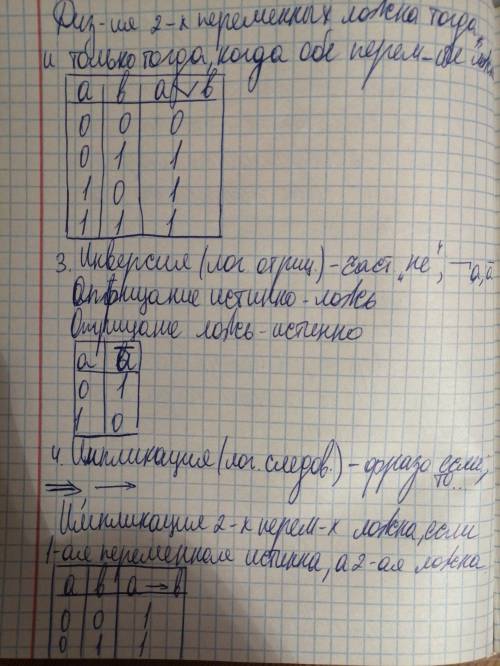 Диз-ия 2-х переменных ложна тогда
и только тогда, когда обе перем-ые лож
a b a ∨ b
0 0 0
0 1 1
1 0 1
1 1 1
3. Инверсия (лог. отриц.) - част. "не", ¬a, ā
Отрицание истинно - ложь
Отрицание ложь - истинно
a ā
0 1
1 0
4. Импликация (лог. следов.) - фраза если,
⇒ → то...
Импликация 2-х перем-х ложна, если
1-ая переменная истинна, а 2-ая ложна
a b a → b
0 0 1
0 1 1